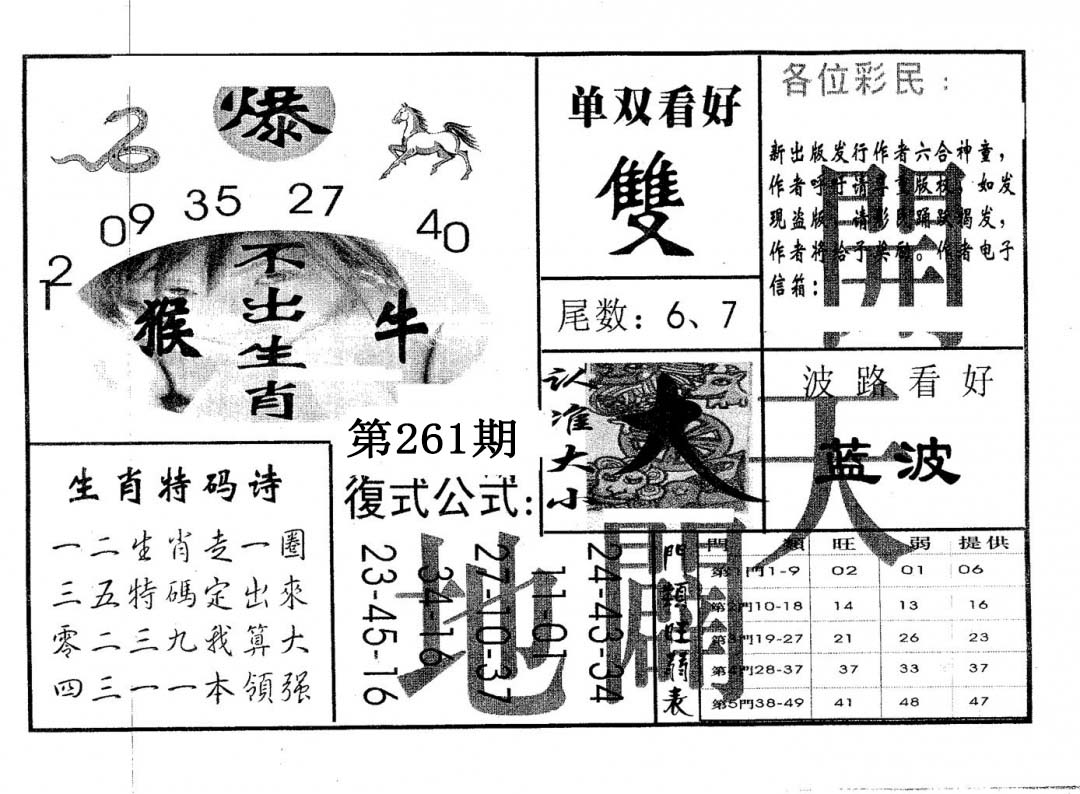 爆
09 35 27 40
12
猴
不出生肖
牛
单双看好
雙
尾数：6、7
各位彩民：
新出版发行作者六合神童，
作者呼吁请尊重版权，如发
现盗版，请彩民踊跃揭发，
作者将给予奖励。作者电子
信箱：
第261期
復式公式:
23-45-16
34-16
27-10-37
11-01
24-43-34
认准大小
大
波路看好
蓝波
開天
闢地
生肖特码诗
一二生肖走一圈
三五特碼定出來
零二三九我算大
四三一一本領强
門類旺弱表
門類 旺 弱 提供
第1門1-9 02 01 06
第2門10-18 14 13 16
第3門19-27 21 26 23
第4門28-37 37 33 37
第5門38-49 41 48 47